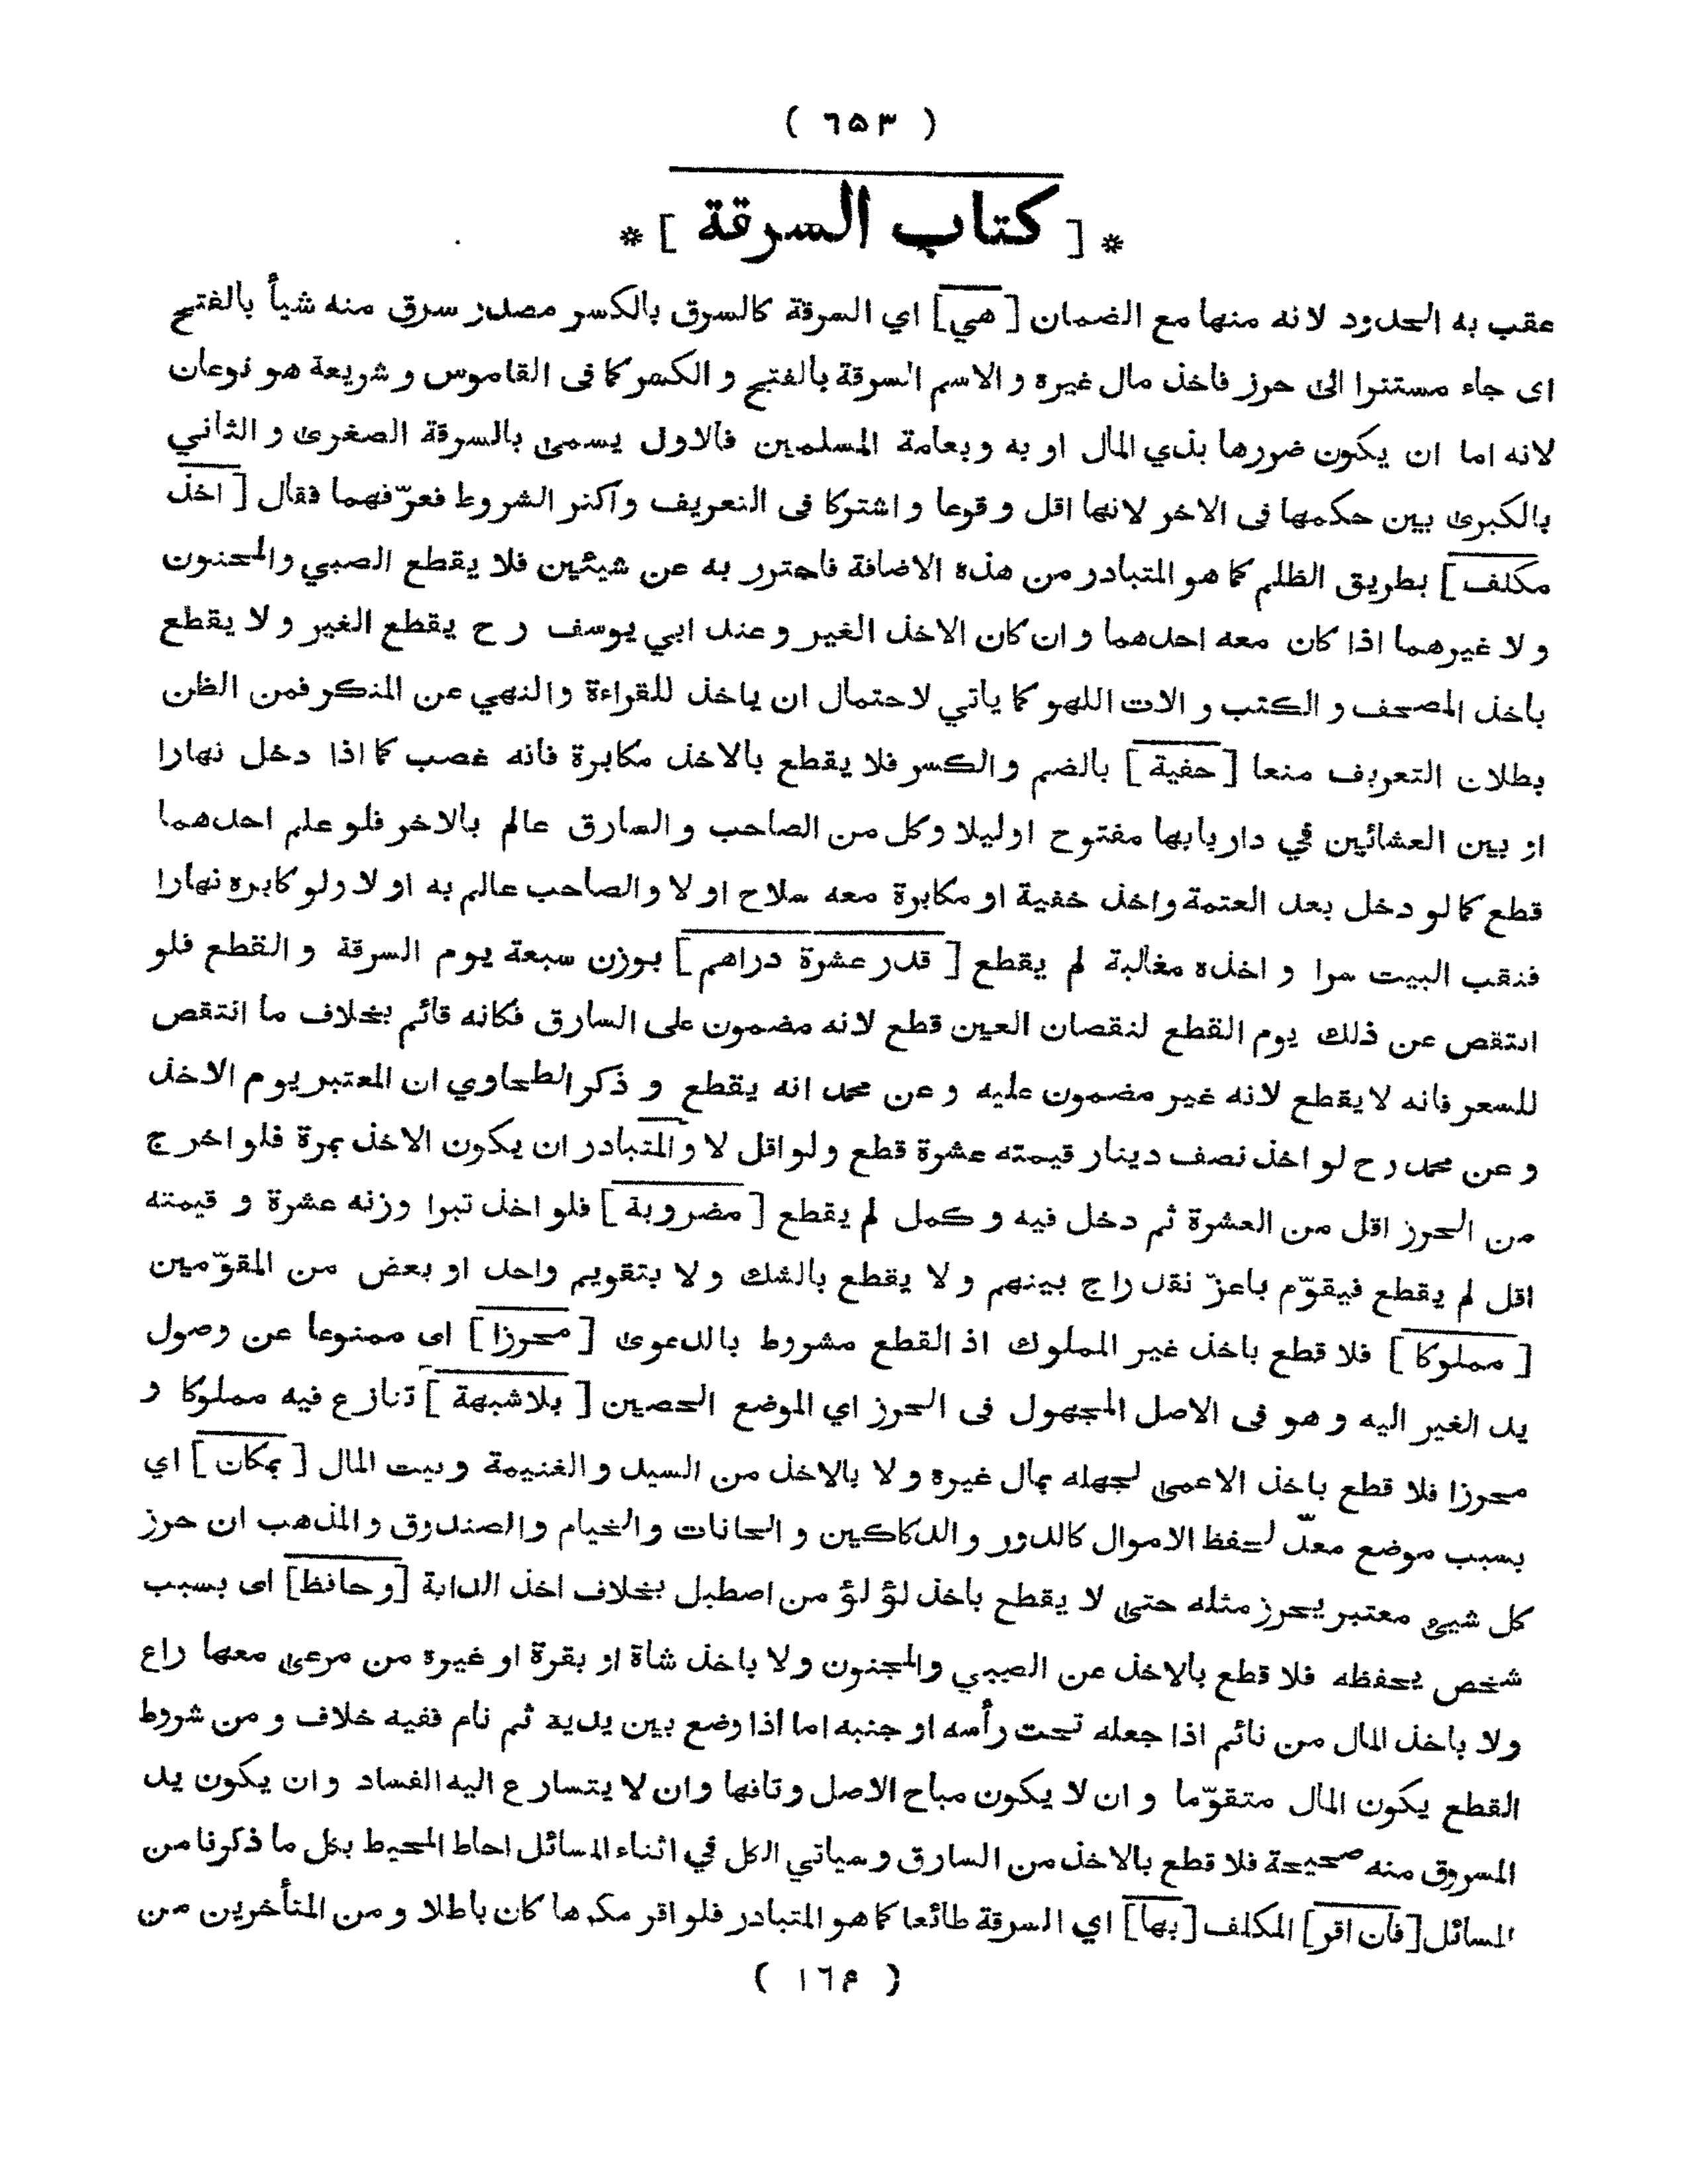 ( ٦٥٣ )
* [ كتاب السرقة ] *
عقب به الحدود لانه منها مع الضمان [هي] اي السرقة كالسرق بالكسر مصدر سرق منه شيأ بالفتح
اى جاء مستترا الى حرز فاخذ مال غيره و الاسم السرقة بالفتح و الكسر كما فى القاموس و شريعة هو نوعان
لانه اما ان يكون ضررها بذي المال او به و بعامة المسلمين فالاول يسمى بالسرقة الصغرى و الثاني
بالكبرى بين حكمها فى الاخر لانها اقل وقوعا و اشتركا فى التعريف واكثر الشروط فعرّفهما فقال [ اخذ
مكلف ] بطريق الظلم كما هو المتبادر من هذه الاضافة فاحترز به عن شيئين فلا يقطع الصبي والمجنون
و لا غيرهما اذا كان معه احدهما و ان كان الاخذ الغير و عند ابي يوسف رح يقطع الغير و لا يقطع
باخذ المصحف و الكتب و الات اللهو كما يأتي لاحتمال ان ياخذ للقراءة والنهي عن المنكر فمن الظن
بطلان التعريف منعا [ خفية ] بالضم و الكسر فلا يقطع بالاخذ مكابرة فانه غصب كما اذا دخل نهارا
او بين العشائين في دار بابها مفتوح اوليلا وكل من الصاحب و السارق عالم بالاخر فلو علم احدهما
قطع كما لو دخل بعد العتمة واخذ خفية او مكابرة معه سلاح او لا والصاحب عالم به او لا ولو كابره نهارا
فنقب البيت سرا و اخذه مغالبة لم يقطع [ قدر عشرة دراهم ] بوزن سبعة يوم السرقة و القطع فلو
انتقص عن ذلك يوم القطع لنقصان العين قطع لانه مضمون على السارق فكانه قائم بخلاف ما انتقص
للسعر فانه لا يقطع لانه غير مضمون عليه و عن محمد انه يقطع و ذكر الطحاوي ان المعتبر يوم الاخذ
و عن محمد رح لو اخذ نصف دينار قيمته عشرة قطع و لو اقل لا و المتبادر ان يكون الاخذ بمرة فلو اخرج
من الحرز اقل من العشرة ثم دخل فيه و كمل لم يقطع [ مضروبة ] فلو اخذ تبرا وزنه عشرة و قيمته
اقل لم يقطع فيقوّم باعزّ نقد راج بينهم و لا يقطع بالشك و لا بتقويم واحد او بعض من المقوّمين
[ مملوكا ] فلا قطع باخذ غير المملوك اذ القطع مشروط بالدعوى [ محرزا ] اى ممنوعا عن وصول
يد الغير اليه و هو فى الاصل المجهول فى الحرز اي الموضع الحصين [ بلاشبهة ] تنازع فيه مملوكا و
محرزا فلا قطع باخذ الاعمى لجهله بمال غيره و لا بالاخذ من السيد و الغنيمة وبيت المال [ بمكان ] اي
بسبب موضع معدّ لحفظ الاموال كالدور و الدكاكين و الحانات و الخيام والصندوق والمذهب ان حرز
كل شيئ معتبر بحرز مثله حتى لا يقطع باخذ لؤلؤ من اصطبل بخلاف اخذ الدابة [وحافظ] اى بسبب
شخص يحفظه فلا قطع بالاخذ عن الصبي والمجنون ولا باخذ شاة او بقرة او غيره من مرعى معها راع
ولا باخذ المال من نائم اذا جعله تحت رأسه او جنبه اما اذا وضع بين يديه ثم نام ففيه خلاف و من شروط
القطع يكون المال متقوّما و ان لا يكون مباح الاصل و تافها وان لا يتسارع اليه الفساد وان يكون يد
المسروق منه صحيحة فلا قطع بالاخذ من السارق و سياتي الكل في اثناء المسائل احاط المحيط بكل ما ذكرنا من
المسائل [فان اقر] المكلف [بها] اي السرقة طائعا كما هو المتبادر فلو اقر مكرها كان باطلا و من المتأخرين من
( ١٦٤ )